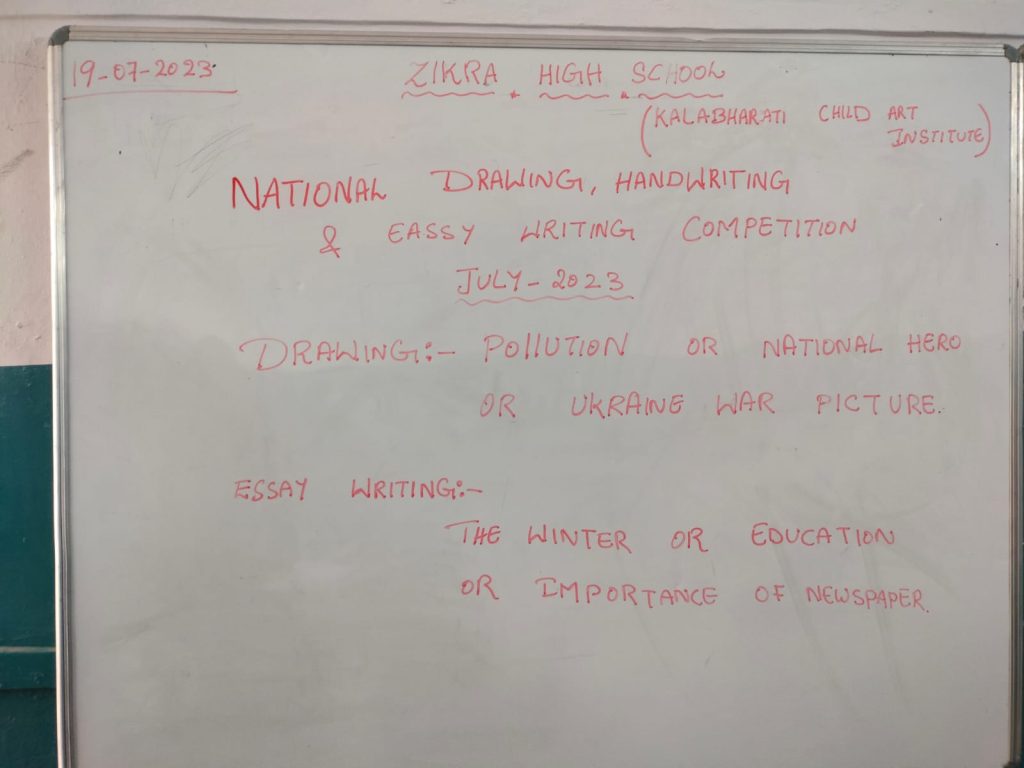 19-07-2023.
ZIKRA HIGH SCHOOL
(KALABHARATI CHILD ART
INSTITUTE)
NATIONAL DRAWING, HANDWRITING
& EASSY WRITING COMPETITION
JULY-2023
DRAWING:- POLLUTION OR NATIONAL HERO
OR UKRAINE WAR PICTURE.
ESSAY WRITING:-
THE WINTER OR EDUCATION
OR IMPORTANCE OF NEWSPAPER.